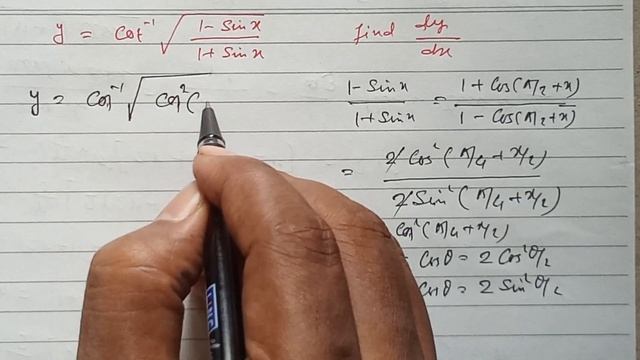 y = Cot⁻¹ √((1 - Sinx)/(1 + Sinx)) find dy/dx
y = Cot⁻¹ √(Cot²(
(1 - Sinx)/(1 + Sinx) = (1 + Cos(π/2 + x))/(1 - Cos(π/2 + x))
= (2 Cos²(π/4 + x/2))/(2 Sin²(π/4 + x/2))
Cot²(π/4 + x/2)
Cosθ = 2 Cos²θ/2
Cosθ = 2 Sin²θ/2